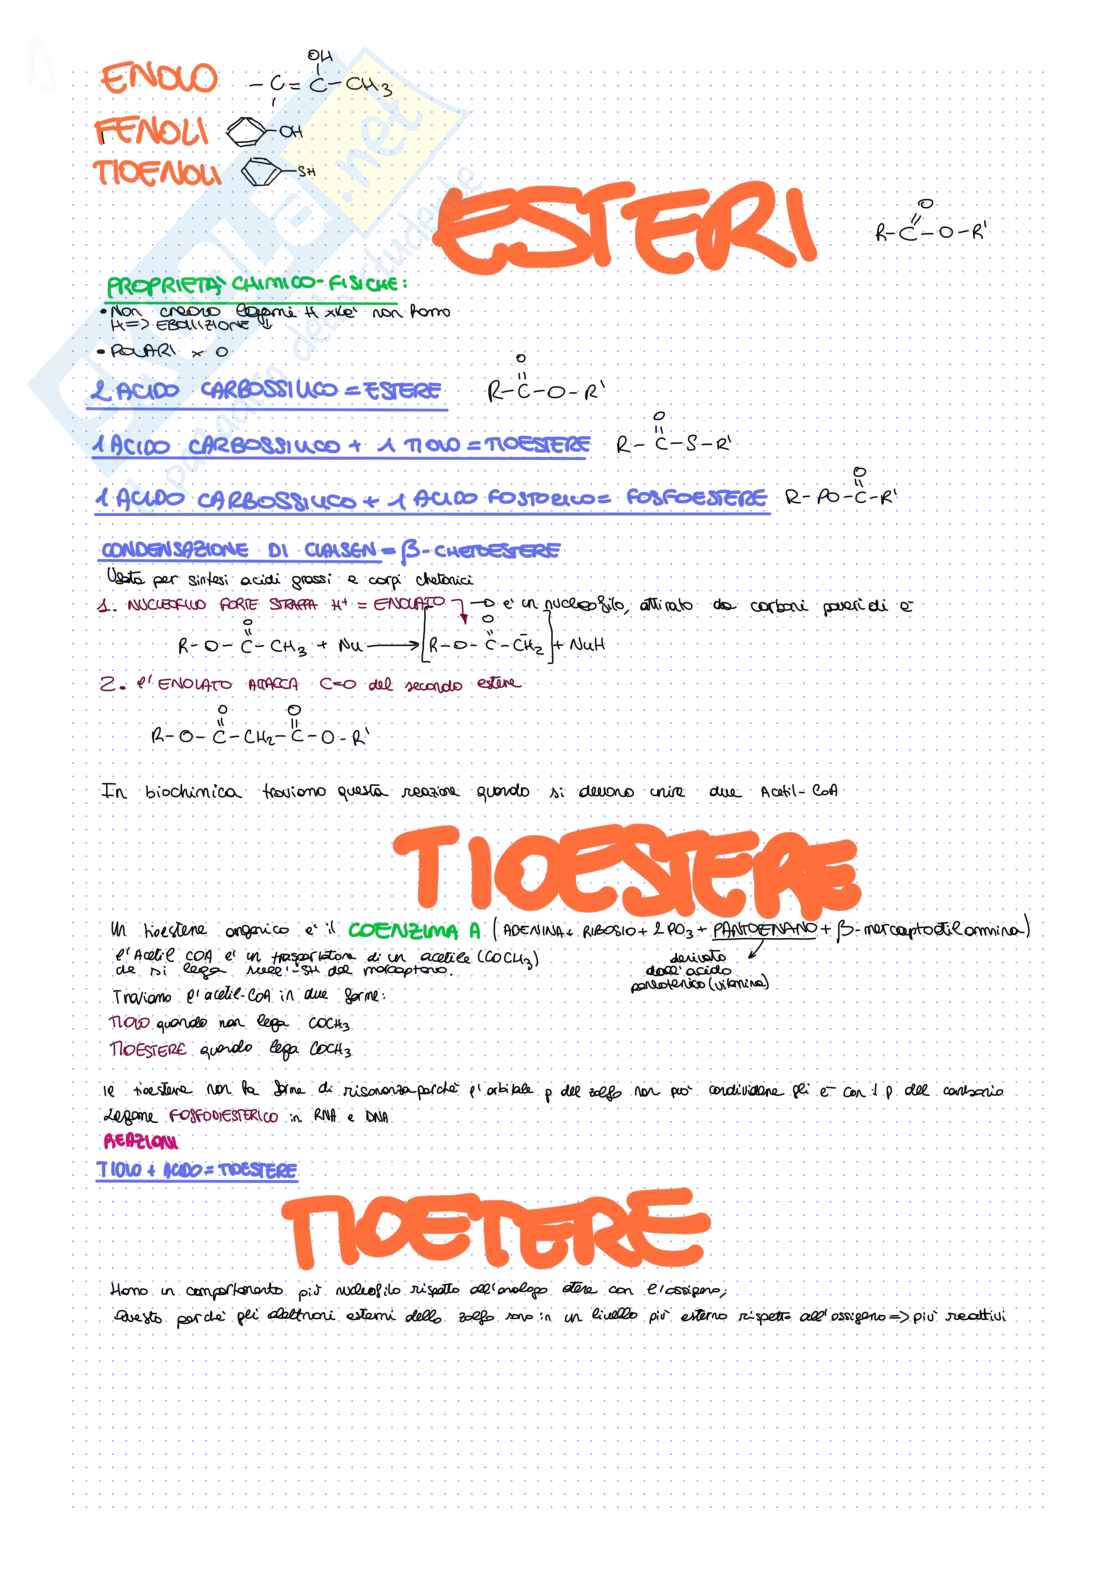 ENOLO -C=C-CH3 OH
FENOLI -OH
TIOENOLI -SH
ESTERI R-C-O-R' O
PROPRIETÀ CHIMICO-FISICHE:
• Non creano legami H xké non hanno
H => EBOLLIZIONE ↓
• POLARI x O
2 ACIDO CARBOSSILICO = ESTERE R-C-O-R' O
1 ACIDO CARBOSSILICO + 1 TIOLO = TIOESTERE R-C-S-R' O
1 ACIDO CARBOSSILICO + 1 ACIDO FOSFORICO = FOSFOESTERE R-PO-C-R' O
CONDENSAZIONE DI CLAISEN = β-CHETOESTERE
Usata per sintesi acidi grassi e corpi chetonici
1. NUCLEOFILO FORTE STRAPPA H+ = ENOLATO → è un nucleofilo, attirato da carboni poveri di e-
R-O-C-CH3 + Nu → [R-O-C-CH2] + NuH
2. l'ENOLATO ATTACCA C=O del secondo estere
R-O-C-CH2-C-O-R'
In biochimica troviamo questa reazione quando si devono unire due Acetil-CoA
TIOESTERE
Un tioestere organico è il COENZIMA A (ADENINA + RIBOSIO + 2PO3 + PANTOENANO + β-mercaptoetilammina)
l'Acetil COA è un trasportatore di un acetile (COCH3)
che si lega sull'-SH del mercaptano.
derivato
dall'acido
pantotenico (vitamina)
Troviamo l'acetil-CoA in due forme:
TIOLO quando non lega COCH3
TIOESTERE quando lega COCH3
Il tioestere non ha forme di risonanza perché l'orbitale p del zolfo non può condividere gli e- con il p del carbonio
Legame FOSFODIESTERICO in RNA e DNA
REAZIONI
TIOLO + ACIDO = TIOESTERE
TIOETERE
Hanno un comportamento più nucleofilo rispetto all'analogo etere con l'ossigeno;
Questo perché gli elettroni esterni dello zolfo sono in un livello più esterno rispetto all'ossigeno => più reattivi